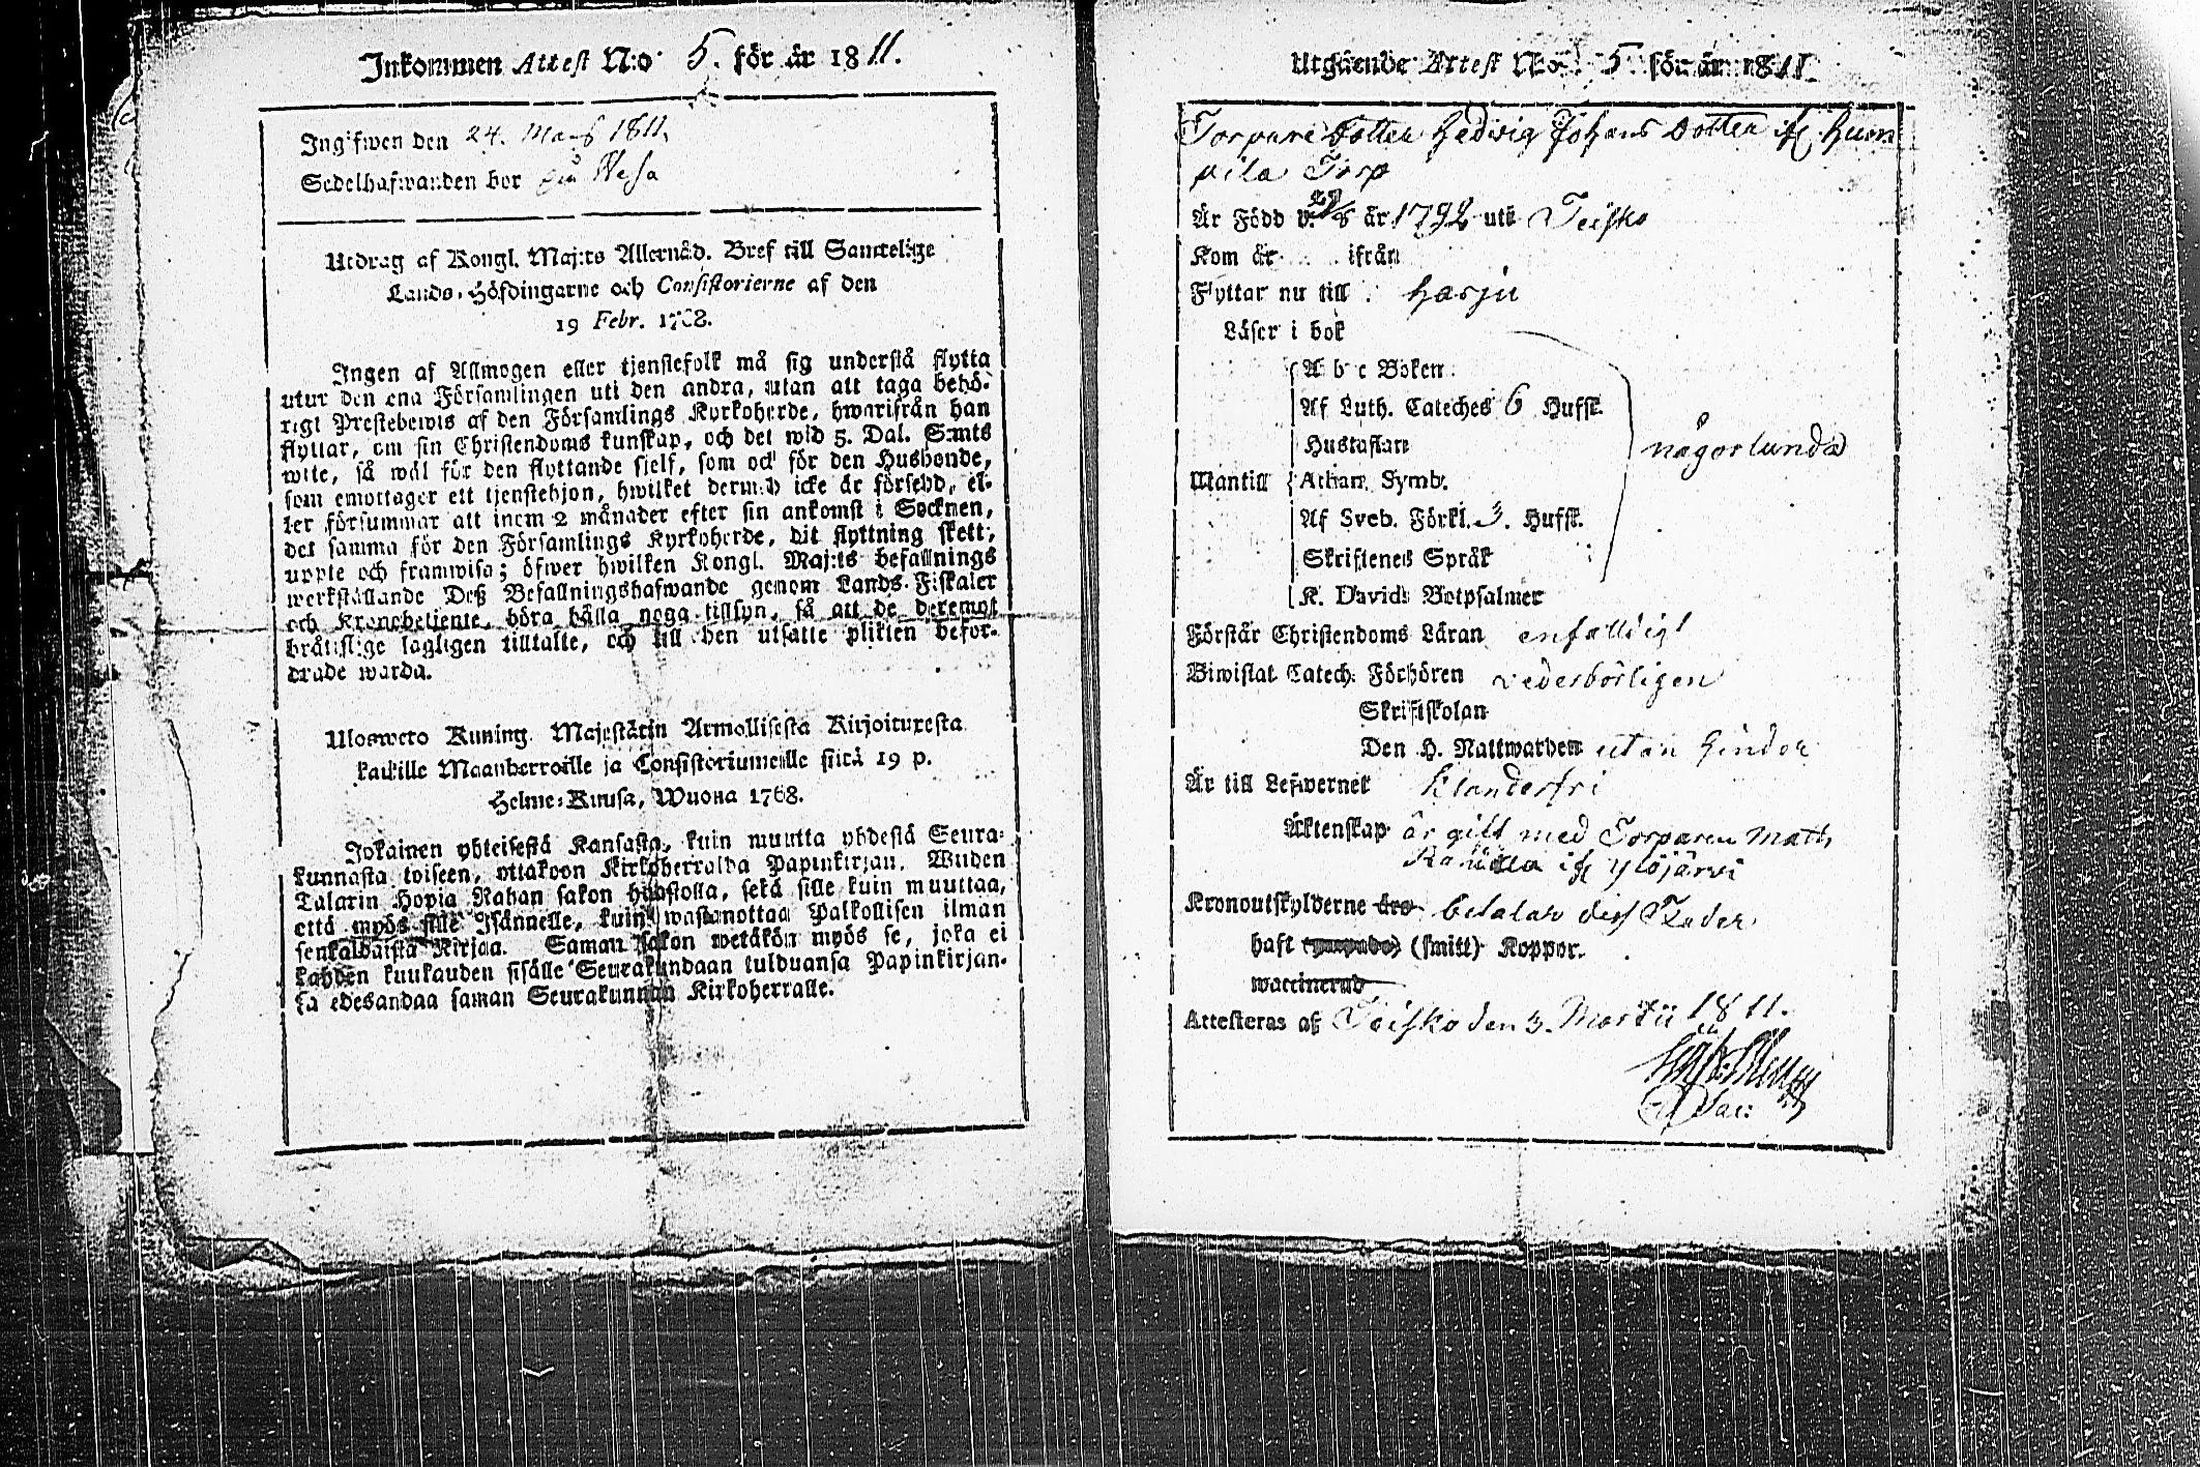 Inkommen Attest N:o 5. för år 1811.
Ingifwen den 24. Mars 1811.
Sedelhafwanden bor på Wesa
Utdrag af Kongl. Maj:ts Allernåd. Bref till Samtelige
Lands-Höfdingarne och Consistorierne af den
19 Febr. 1768.
Ingen af Allmogen eller tjenstefolk må sig understå flytta
utur den ena Församlingen uti den andra, utan att taga behö-
rigt Prestebewis af den Församlings Kyrkoherde, hwarifrån han
flyttar, om sin Christendoms kunskap, och det wid 5. Dal. S:mts
wite, så wäl för den flyttande sjelf, som ock för den Husbonde,
som emottager ett tjenstehjon, hwilket dermed icke är försedd, el-
ler försummar att inom 2 månader efter sin ankomst i Socknen,
det samma för den Församlings Kyrkoherde, dit flyttning skett,
uppte och framwisa; öfwer hwilken Kongl. Maj:ts befallnings
werkställande Deß Befallningshafwande genom Lands-Fiskaler
och Kronobetjente, böra hålla noga tillsyn, så att de deremot
bråttslige lagligen tilltalte, och till den utsatte plikten befor-
drade warda.
Ulosweto Kuning. Majestätin Armollisesta Kirjoituxesta
kaikille Maanherroille ja Consistoriumeille siitä 19 p.
Helme-Kuusa, Wuona 1768.
Jokainen yhteisestä Kansasta, kuin muutta yhdestä Seura-
kunnasta toiseen, ottakoon Kirkoherralda Papinkirjan. Wiiden
Talarin Hopia Rahan sakon haastolla, sekä sille kuin muuttaa,
että myös sille Isännelle, kuin wastanottaa Palkollisen ilman
senkaldaista Kirjaa. Saman sakon wetäkön myös se, joka ei
kahden kuukauden sisälle Seurakundaan tulduansa Papinkirjan-
sa edesandaa saman Seurakunnan Kirkoherralle.
Utgående Attest N:o 5 för år 1811.
Torpare Dotter Hedvig Johans Dotter if
pila Torp
Är Född d. 29/8 år 1792 uti Teisko
Kom år ifrån
Flyttar nu till Harju
Läser i bok
A b c Boken.
Af Luth. Cateches 6 Hufst.
Hustaflan
någorlunda
Utantill Athan. Symb.
Af Sveb. Förkl. 3. Hufst.
Skriftenes Språk
K. Davids Botpsalmer
Förstår Christendoms Läran enfaldigt
Biwistat Catech. Förhören vederbörligen
Skriftskolan
Den H. Nattwarden utan hinder
Är till Lefwernet Klanderfri
Äktenskap är gift med Torparen Matts
if Ylöjärvi
Kronoutskylderne äro betalar dess Fader
haft (smitt) Koppor.
waccinerad
Attesteras af Teisko den 3. Martii 1811.